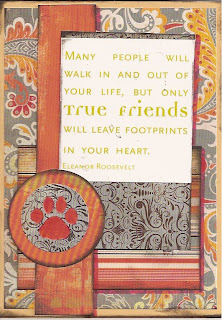 MANY PEOPLE WILL
WALK IN AND OUT OF
YOUR LIFE, BUT ONLY
TRUE FRIENDS
WILL LEAVE FOOTPRINTS
IN YOUR HEART.
ELEANOR ROOSEVELT